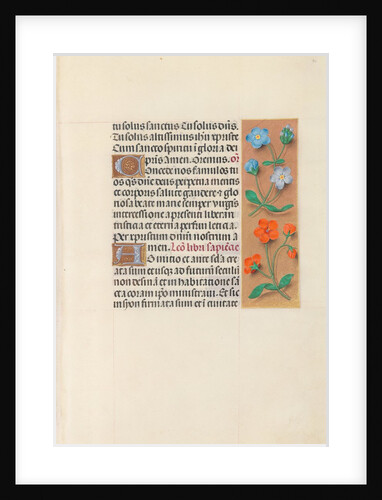 tu solus sanctus. Tu solus dn̄s.
Tu solus altissimus ihu xpriste
Cum sancto spiritu ī gloria dei
pr̄is Amen. Oremus. or̄
Oncede nos famulos tu
os qs̄ dn̄e deus perpetua mentis
et corporis salute gaudere & glo
riosa beate marie semper virgīs
intercessione a presenti liberari
tristicia et eterna perfrui leticia.
Per xpristum dnm̄ nostrum a
men. Lcō libri sapiētie
B initio et ante scl̄a cre
ata sum et usque ad futurū seculū
non desinā et in habitatione sāc
ta coram ip̄o ministraui. Et sic
in syon firmata sum et ī ciuitate